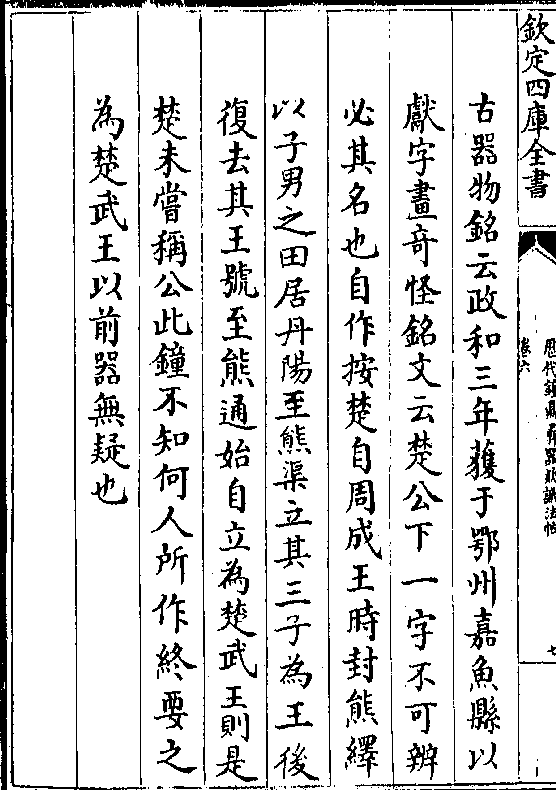 欽定四庫全書
歷代鐘鼎彝器款識法帖
卷六
七
古器物銘云政和三年獲于鄂州嘉魚縣以
獻字畫奇怪銘文云楚公下一字不可辨
必其名也自作按楚自周成王時封熊繹
以子男之田居丹陽至熊渠立其三子為王後
復去其王號至熊通始自立為楚武王則是
楚未嘗稱公此鐘不知何人所作終要之
為楚武王以前器無疑也